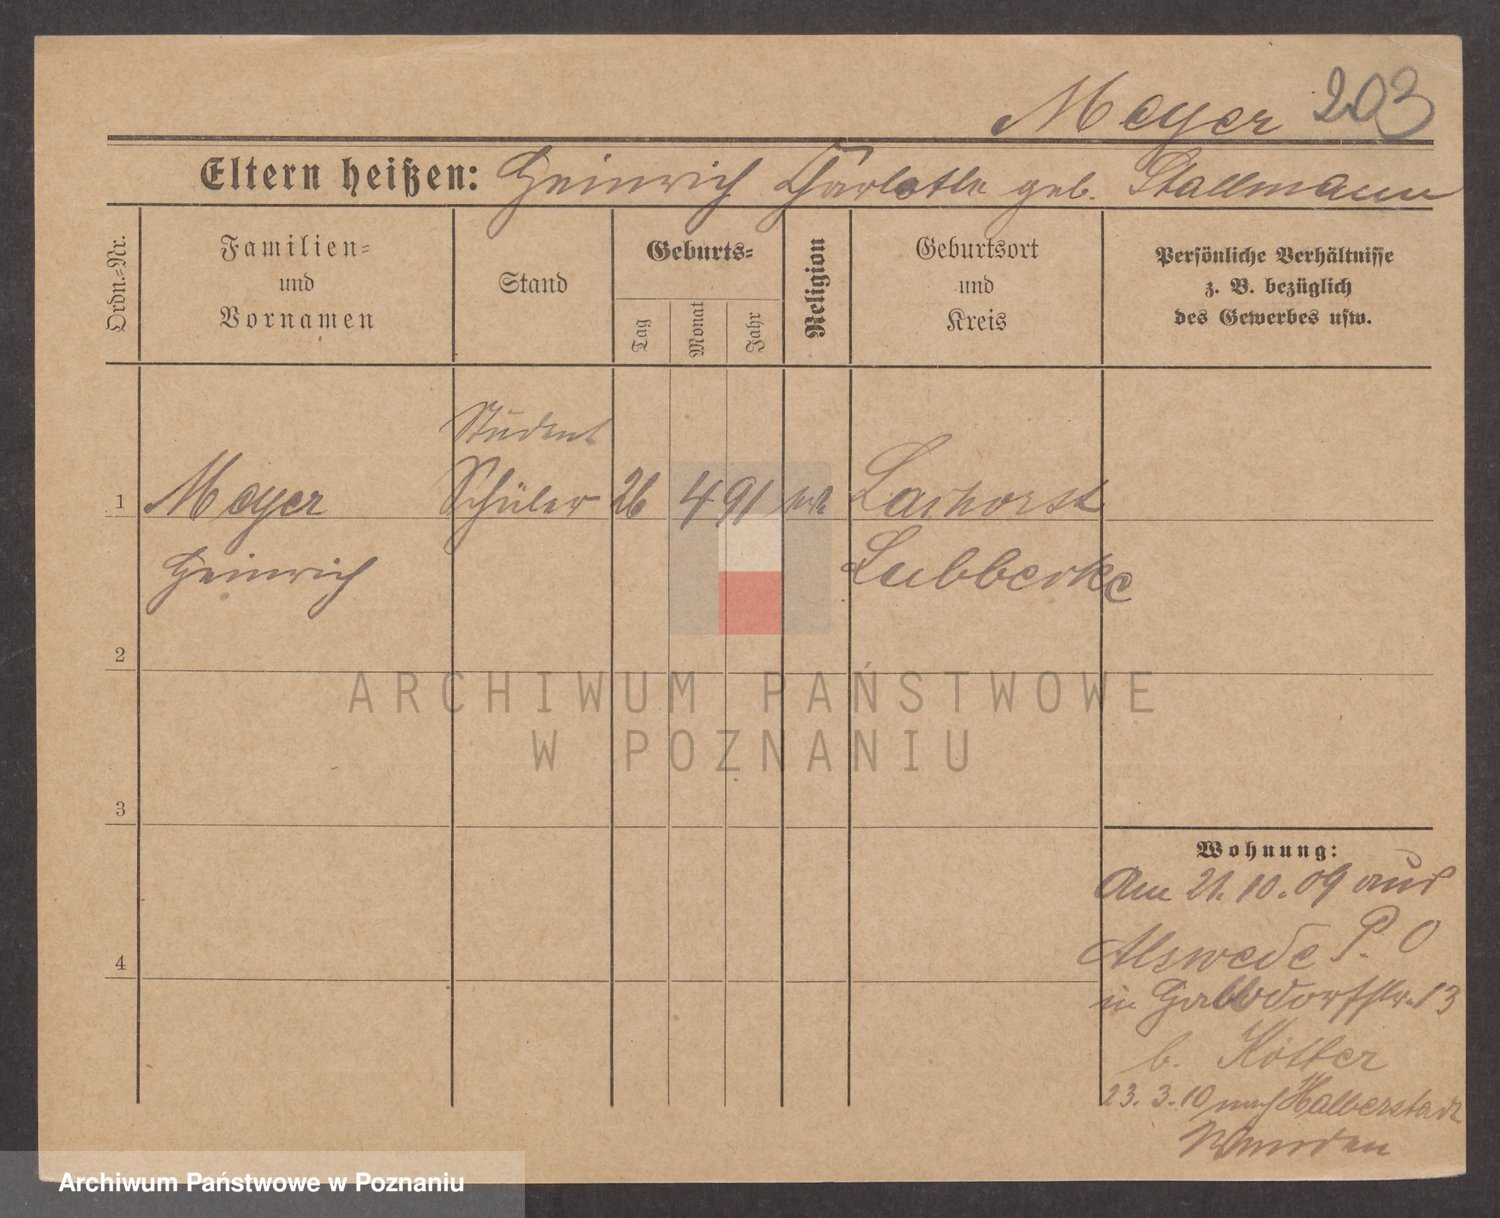 Meyer 203
Eltern heißen: Heinrich Charlotte geb. Stallmann
Ordn.-Nr.
Familien-
und
Vornamen
Stand
Geburts-
Tag
Monat
Jahr
Religion
Geburtsort
und
Kreis
Persönliche Verhältnisse
z. B. bezüglich
des Gewerbes usw.
Student
1 Meyer Schüler 26 4 91 Larhorst
Heinrich Lubberke
2
ARCHIWUM PAŃSTWOWE
W POZNANIU
3
Wohnung:
Am 21.10.09 aus
Alswede P. O
4
in Gabsdorfstr. 13
b. Kötter
23. 3. 10 nach Halberstadt
Archiwum Państwowe w Poznaniu